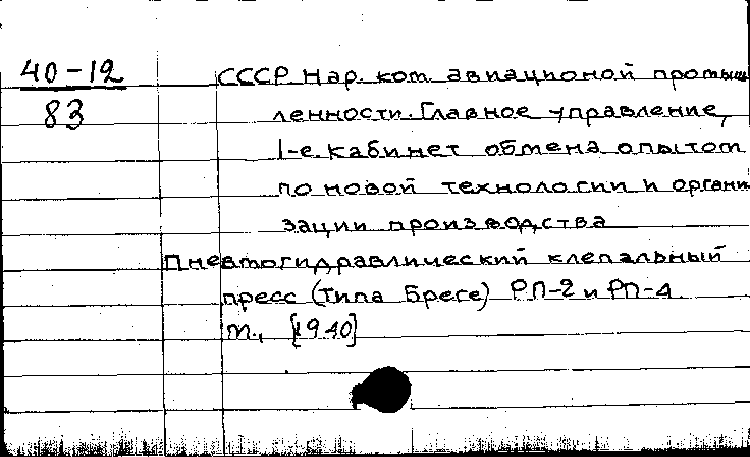 40-12
83
СССР. Нар. ком. авиационой промыш
ленности. Главное управление,
1-е. кабинет обмена опытом
по новой технологии и органи
зации производства
Пневтогидравлический клепальный
пресс (типа Бреге) РП-2 и РП-4
м., [1940]